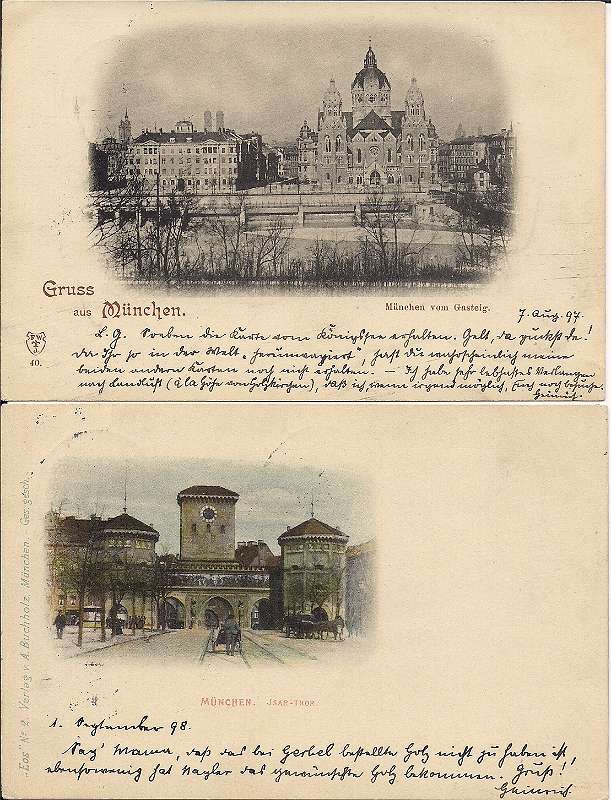 Gruss
aus München.
München vom Gasteig.
7. Aug. 97.
F W
J
40.
L. G. Soeben die Karte vom Königssee erhalten. Gelt, da guckst de!
Da Ihr so in der Welt „herumvagiert“, hast die wahrscheinlich meine
beiden andern Karten noch nicht erhalten. — Ich habe sehr lebhaftes Verlangen
nach Landluft (à la Höhe von Holzkirchen), daß ich, wenn irgend möglich, Euch noch besuche.
Heinrich.
"Eos" No 2. Verlag v. A. Buchholz, München. Ges. gesch.
MÜNCHEN. ISAR-THOR
1. September 98.
Sag' Mama, daß das bei Gerbel bestellte Holz nicht zu haben ist,
ebensowenig hat Nagler das gewünschte Holz bekommen. Gruß!
Heinrich.